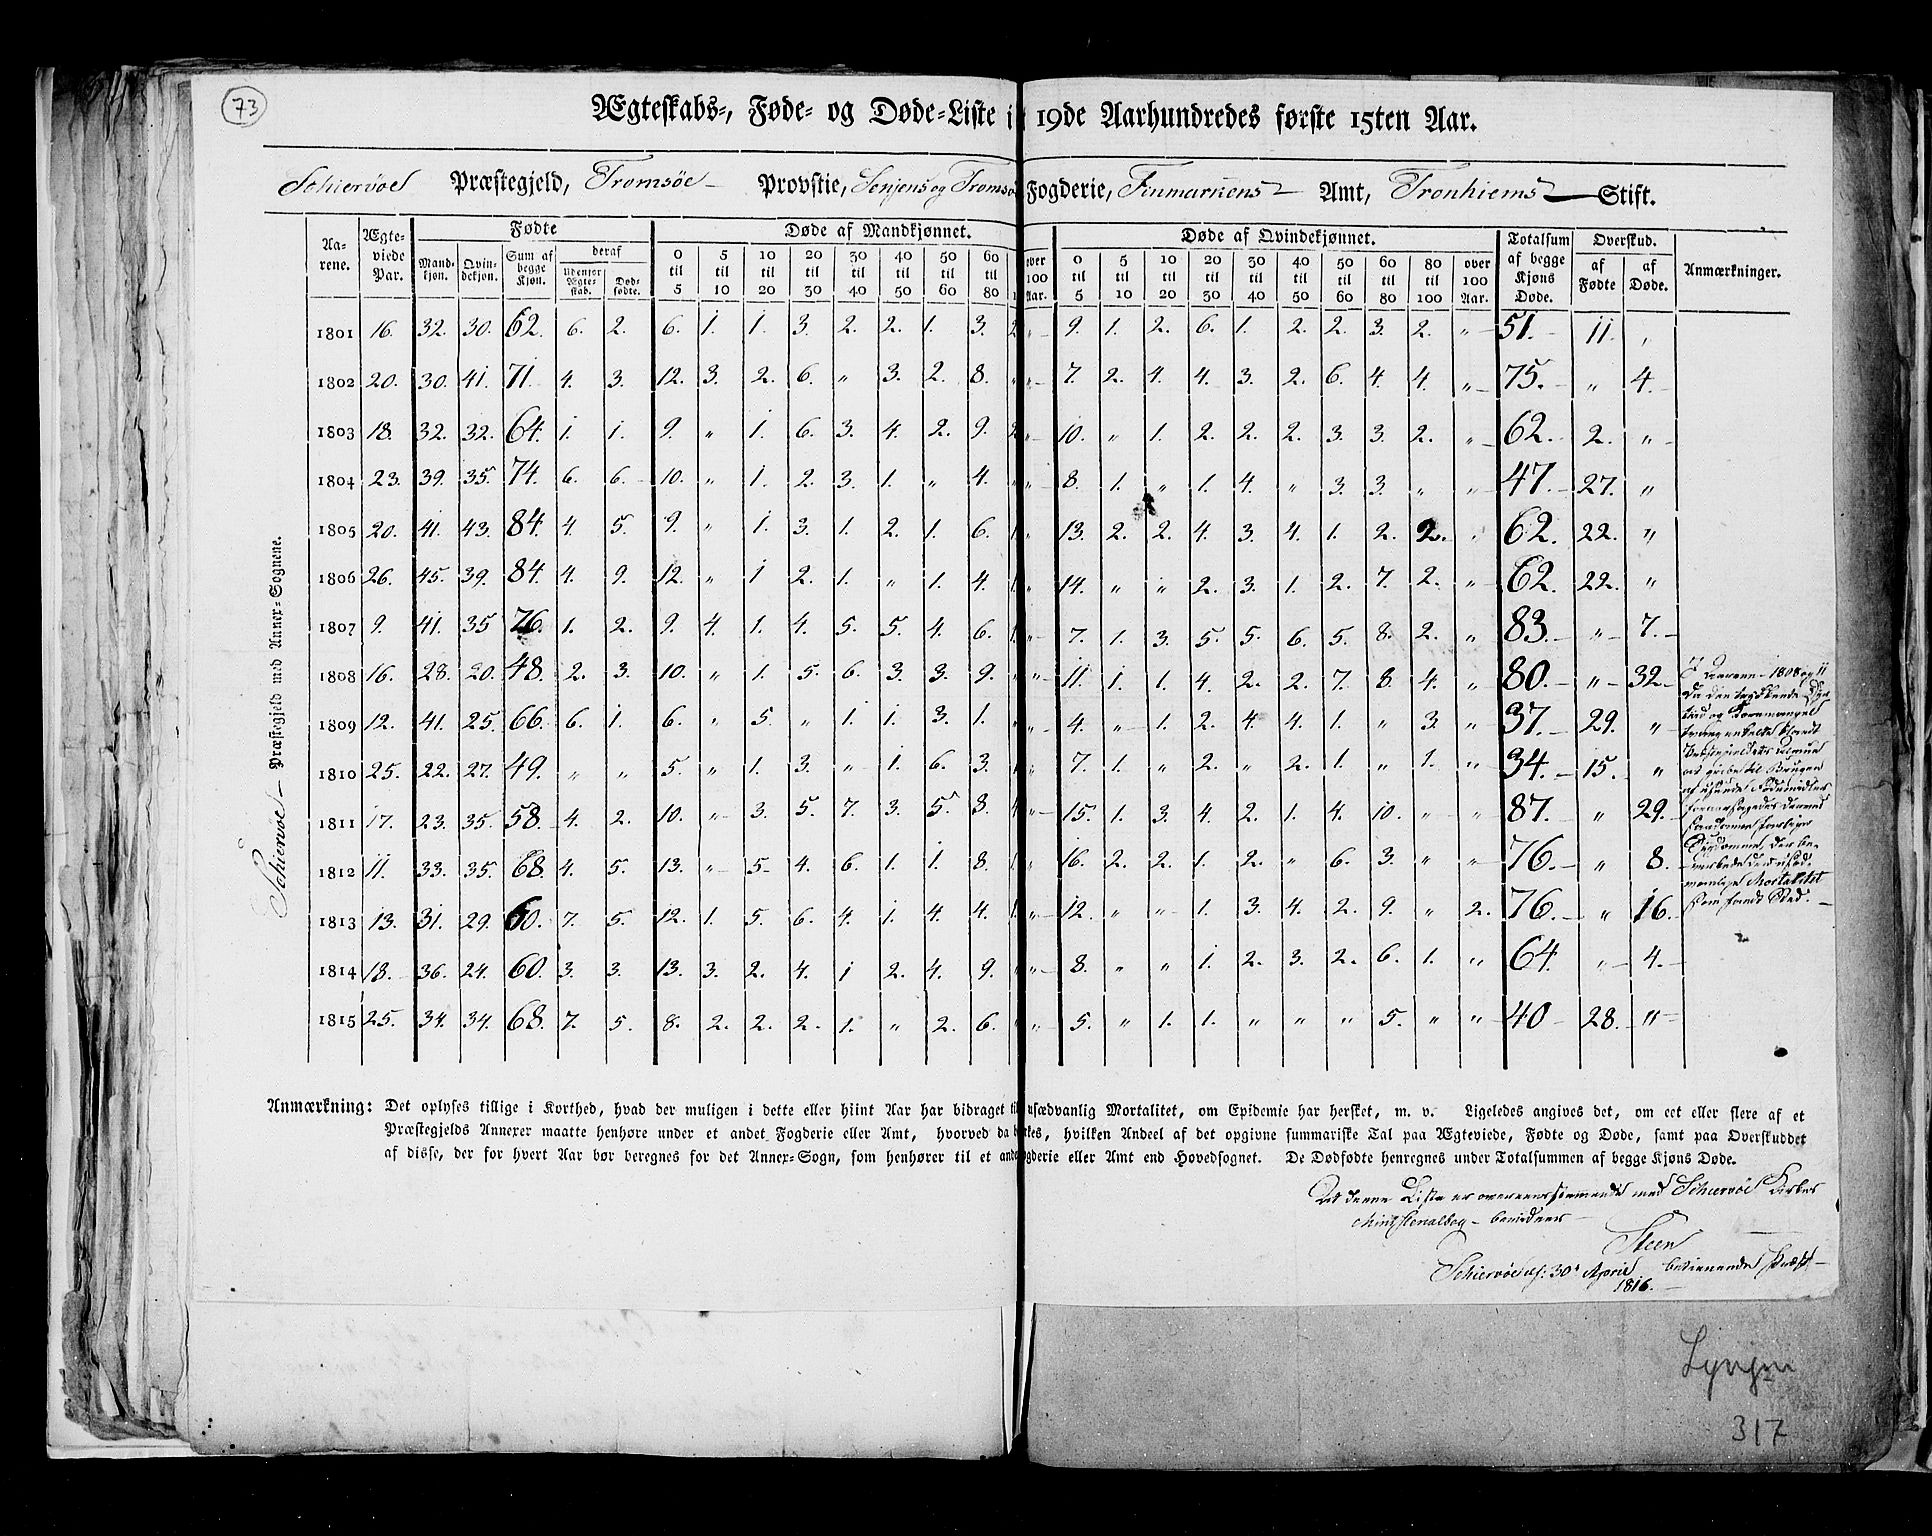 73
Ægteskabs-, Føde- og Døde-Liste i 19de Aarhundredes første 15ten Aar.
Schiervøe Præstegjeld, Tromsøe Provstie, Senjens og Tromsøe Fogderie, Finmarkens Amt, Tronhiems Stift.
Schiervøe Præstegjeld med Annex-Sognene.
Aarene. Ægteviede Par. Fødte Døde af Mandkjønnet. Døde af Qvindekjønnet. Totalsum af begge Kjøns Døde. Overskud. Anmærkninger.
Mandkjøn. Qvindekjøn. Sum af begge Kjøn. deraf Udenfor Ægteskab. Dødfødte. af Fødte af Døde.
0 til 5 5 til 10 10 til 20 20 til 30 30 til 40 40 til 50 50 til 60 60 til 80 over 100 Aar. 0 til 5 5 til 10 10 til 20 20 til 30 30 til 40 40 til 50 50 til 60 60 til 80 80 til 100 over 100 Aar.
1801 16. 32. 30. 62. 6. 2. 6. 1. 1. 3. 2. 2. 1. 3. 2 " 9. 1. 2. 6. 1. 2. 2. 3. 2. " 51. 11. "
1802 20. 30. 41. 71. 4. 3. 12. 3. 2. 6. " 3. 2. 8. " " 7. 2. 4. 4. 3. 2. 6. 4. 4. " 75. " 4.
1803 18. 32. 32. 64. 1. 1. 9. " 1. 6. 3. 4. 2. 9. 2 " 10. " 1. 2. 2. 2. 3. 3. 2. " 62. 2. "
1804 23. 39. 35. 74. 6. 6. 10. " 1. 2. 3. 1. " 4. " " 8. 1. " 1. 4. " 3. 3. " " 47. 27. "
1805 20. 41. 43. 84. 4. 5. 9. " 1. 3. 1. 2. 1. 6. 1. " 13. 2. 2. 4. 3. 4. 1. 2. 2. " 62. 22. "
1806 26. 45. 39. 84. 4. 9. 12. " 1 2. 1. " 1. 4. 1. " 14. " " 2. 3. 1. 2. 7. 2. " 62. 22. "
1807 9. 41. 35 76. 1. 2. 9. 4. 1. 4. 5. 5. 4. 6. 1. " 7. 1. 3. 5. 5. 6. 5. 8. 2. " 83. " 7.
1808 16. 28. 20. 48. 2. 3. 10. " 1. 5. 6. 3. 3. 9. " " 11. 1. 1. 4. 2. 2. 7. 8. 4. " 80. " 32.
1809 12. 41. 25 66. 6. 1. 6. " 5. " 1. 1. 3. 1. " " 4. " 1. 2. 4. 4. 1. " 3. " 37. 29. "
1810 25. 22. 27. 49. " " 5. " 1. 3. " 1. 6. 3. 1. " 7. 1. " 2. " 2. 1. " 1. " 34. 15. "
1811 17. 23. 35. 58. 4. 2. 10. " 3. 5. 7. 3. 5. 8. " 15. 1. 3. 4. 2. 1. 4. 10. " " 87. " 29.
1812 11. 33. 35. 68. 4. 5. 13. " 5 4. 6. 1. 1. 8. 1 " 16. 2. 2. 1. 2. " 6. 3. " " 76. " 8.
1813 13. 31. 29. 60. 7. 5. 12. 1. 5. 6. 4. 1. 4. 4. 1. " 12. " " 1. 3. 4. 2. 9. " 2. 76. " 16.
1814 18. 36. 24. 60. 3. 3. 13. 3. 2. 4. 1 2. 4. 9. " " 8. " " 1. 2. 3. 2. 6. 1. " 64. " 4.
1815 25. 34. 34. 68. 7. 5. 8. 2. 2. 2. 1. " 2. 6. " " 5. " 1. 1. " " " 5. " " 40 28. "
I Aarene 1808 og 11
og Kornmangel
at gribe til Brugen
Sygdomme, der be-
Mortalitet
som fandt Sted.
Anmærkning: Det oplyses tillige i Korthed, hvad der muligen i dette eller hiint Aar har bidraget til usædvanlig Mortalitet, om Epidemie har hersket, m. v. Ligeledes angives det, om eet eller flere af et
Præstegjelds Annexer maatte henhøre under et andet Fogderie eller Amt, hvorved da hvilken Andeel af det opgivne summariske Tal paa Ægteviede, Fødte og Døde, samt paa Overskuddet
af disse, der for hvert Aar bør beregnes for det Annex-Sogn, som henhører til et andet Fogderie eller Amt end Hovedsognet. De Dødfødte henregnes under Totalsummen af begge Kjøns Døde.
At denne Liste er overeensstemmende med Schiervöe Kirkes
Ministerialbog bevidner
Steen
Schiervöe d: 30 April betienende Præst
1816.
Lyngen
317